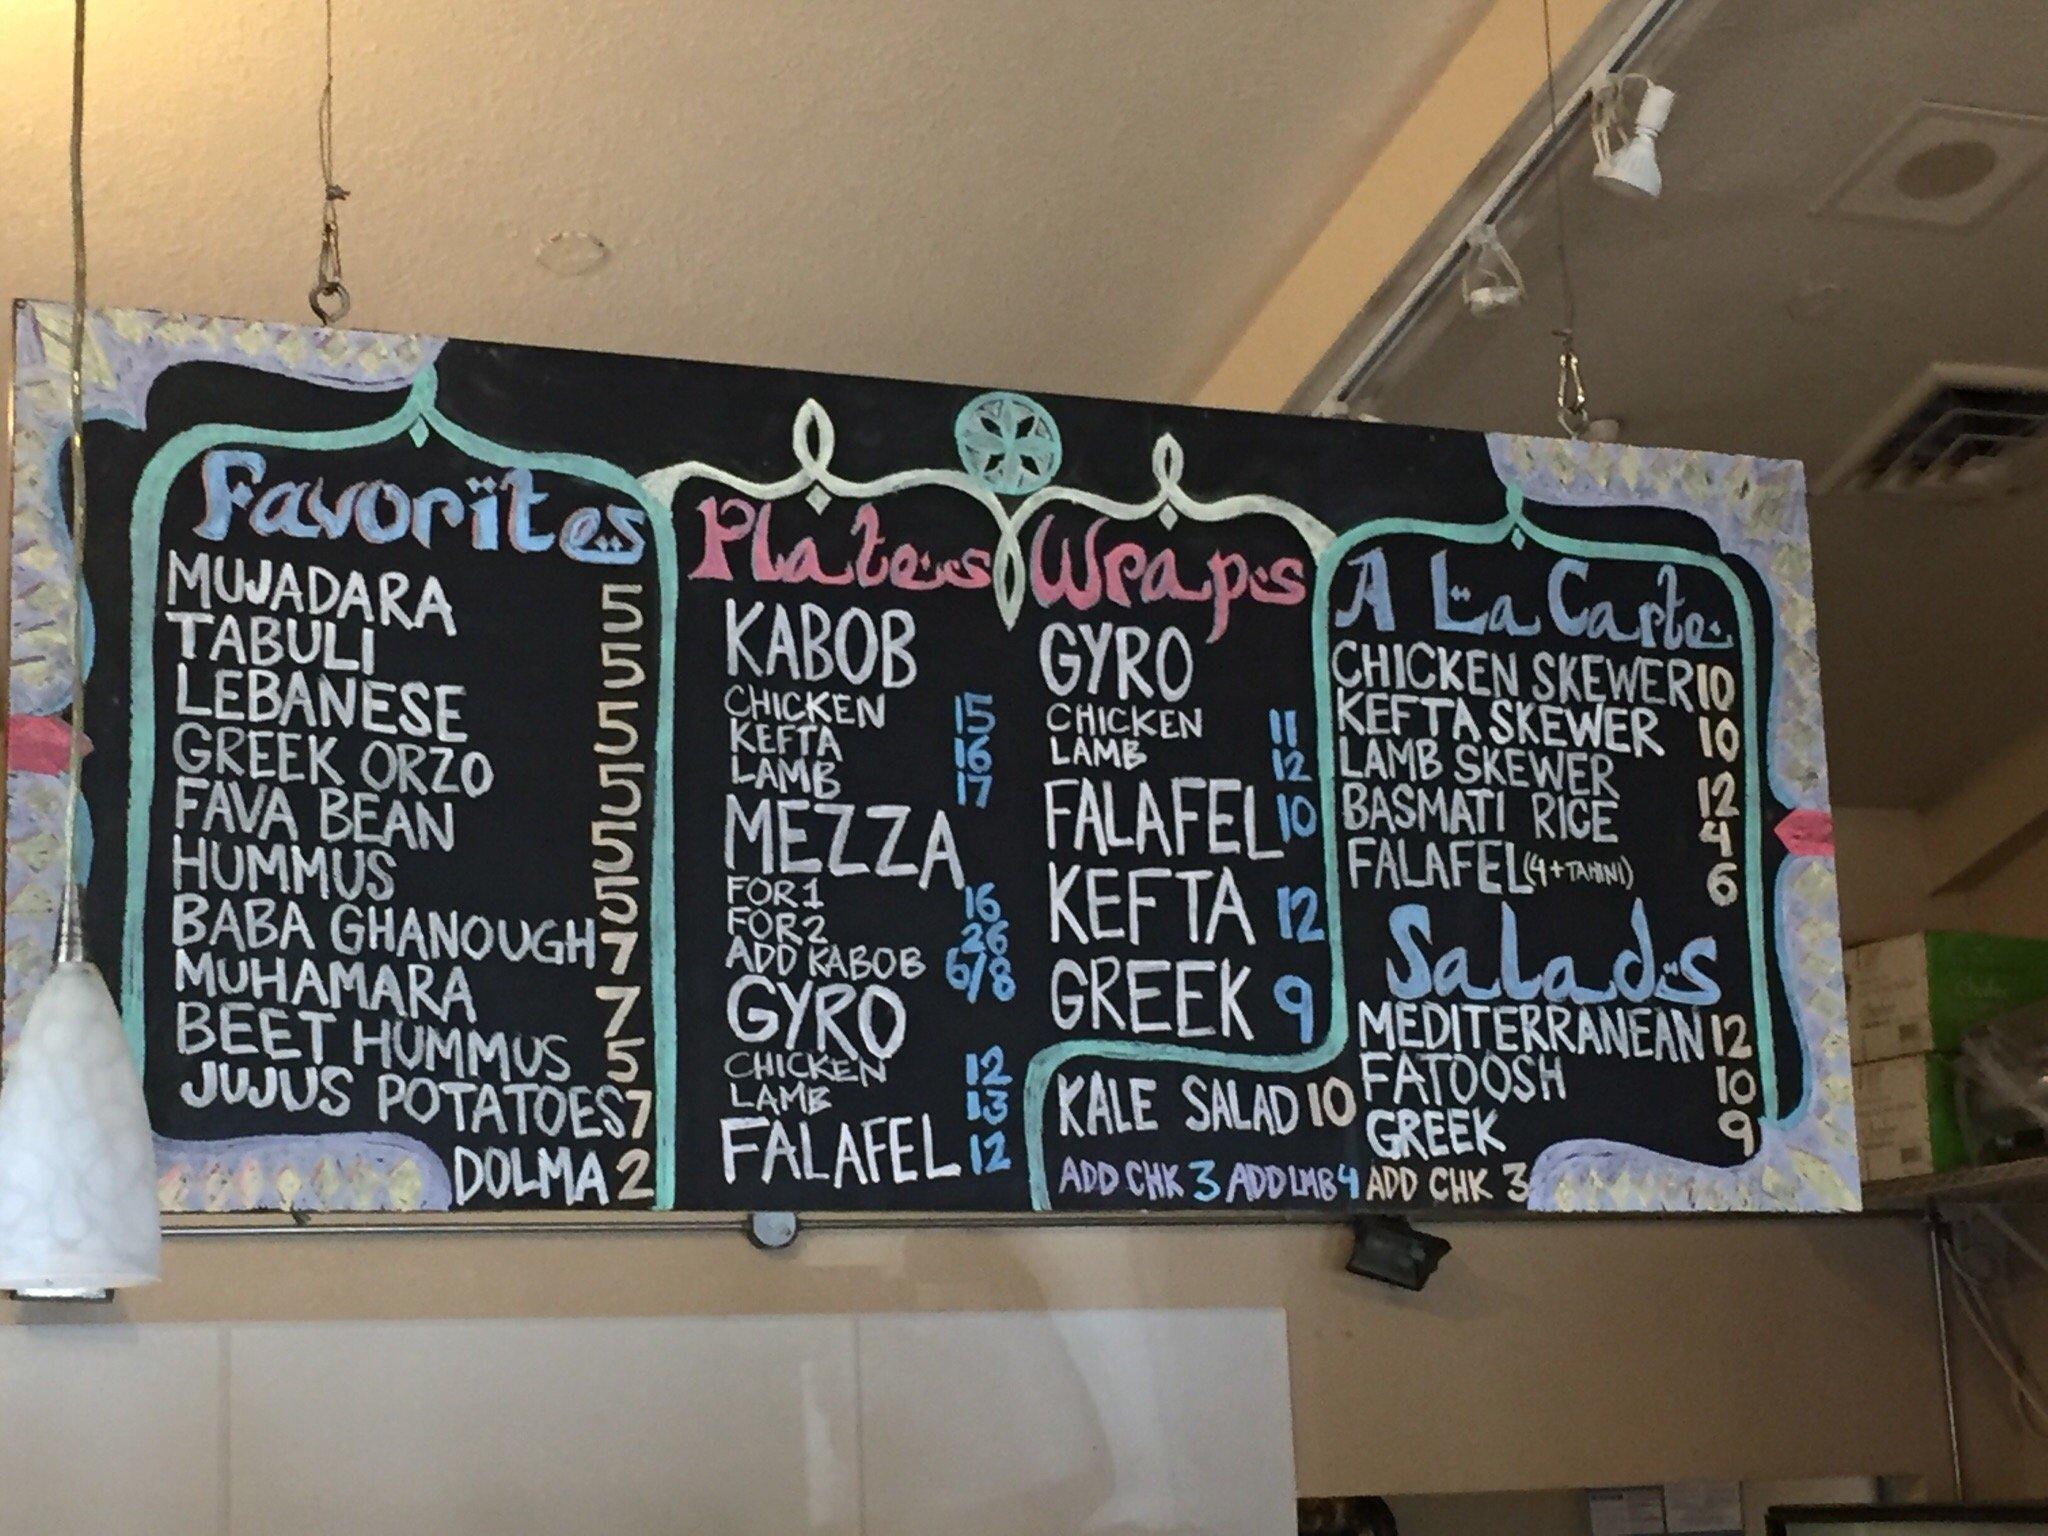 Favorites
MUJADARA 5
TABULI 5
LEBANESE 5
GREEK ORZO 5
FAVA BEAN 5
HUMMUS 5
BABA GHANOUGH 7
MUHAMARA 7
BEET HUMMUS 5
JUJUS POTATOES 7
DOLMA 2
Plates
KABOB
CHICKEN 15
KEFTA 16
LAMB 17
MEZZA
FOR 1 16
FOR 2 26
ADD KABOB 6/8
GYRO
CHICKEN 12
LAMB 13
FALAFEL 12
Wraps
GYRO
CHICKEN 11
LAMB 12
FALAFEL 10
KEFTA 12
GREEK 9
KALE SALAD 10
ADD CHK 3 ADD LMB 4
A La Carte
CHICKEN SKEWER 10
KEFTA SKEWER 10
LAMB SKEWER 12
BASMATI RICE 4
FALAFEL (4+TAHINI) 6
Salads
MEDITERRANEAN 12
FATOOSH 10
GREEK 9
ADD CHK 3